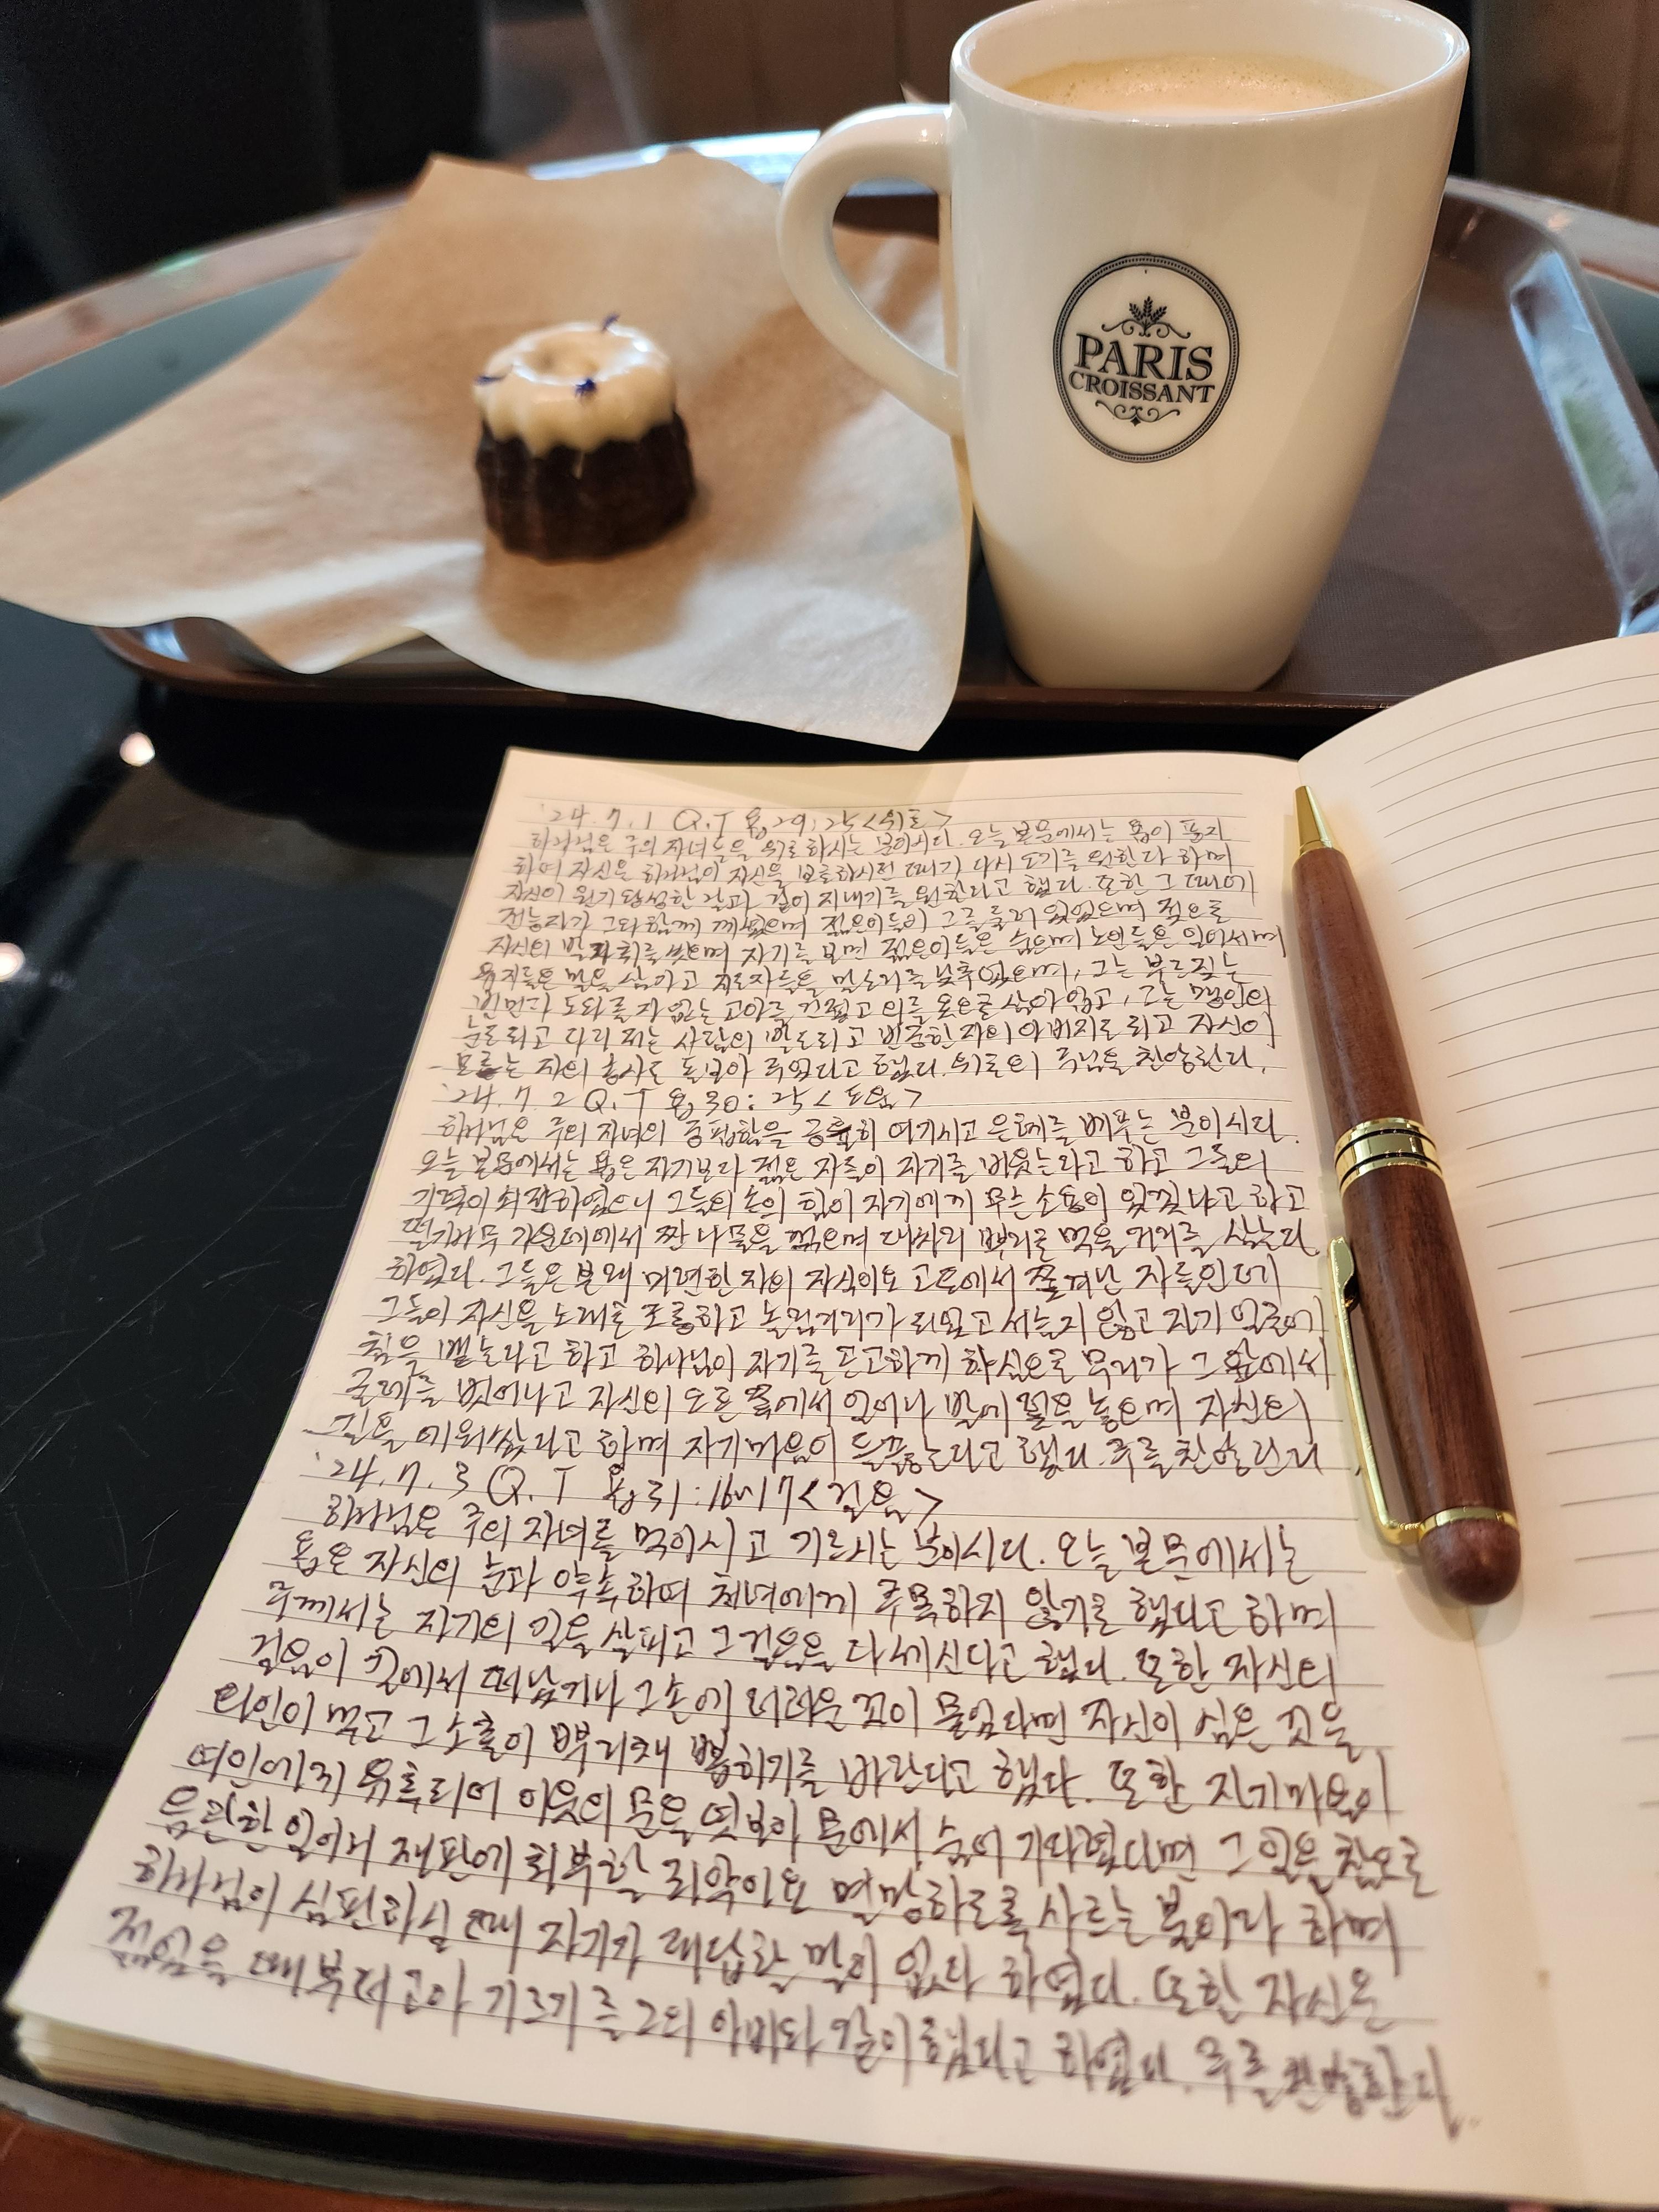 PARIS
CROISSANT
'24. 7. 1 Q.T 욥 29:25 <위로>
하나님은 주의 자녀들을 위로하시는 분이시다. 오늘 본문에서는 욥이 풍자
하여 자신은 하나님이 자신을 보호하시던 때가 다시 오기를 원한다 하며
자신이 원기 왕성한 날과 같이 지내기를 원한다고 했다. 또한 그 때에
전능자가 그와 함께 계셨으며 젊은이들이 그를 둘러 있었으며 젖으로
자신의 발자취를 씻으며 자기를 보면 젊은이들은 숨으며 노인들은 일어서며
유지들은 말을 삼가고 지도자들은 말소리를 낮추었으며, 그는 부르짖는
빈민과 도와 줄 자 없는 고아를 건졌고 의를 옷으로 삼아 입고, 그는 맹인의
눈도 되고 다리 저는 사람의 발도 되고 빈궁한 자의 아버지도 되고 자신이
모르는 자의 송사도 돌보아 주었다고 했다. 위로의 주님을 찬양한다.
'24. 7. 2 Q.T 욥 30:25 <도움>
하나님은 주의 자녀의 궁핍함을 긍휼히 여기시고 은혜를 베푸는 분이시다.
오늘 본문에서는 욥은 자기보다 젊은 자들이 자기를 비웃는다고 하고 그들의
기력이 쇠잔하였으니 그들의 손의 힘이 자기에게 무슨 소용이 있겠냐고 하고
떨기나무 가운데에서 짠 나물을 꺾으며 대싸리 뿌리로 먹을 거리를 삼는다
하였다. 그들은 본래 미련한 자의 자식이요 고토에서 쫓겨난 자들인데
그들이 자신을 노래로 조롱하고 놀림거리가 되었고 서슴지 않고 자기 얼굴에
침을 뱉는다고 하고 하나님이 자기를 곤고하게 하심으로 무리가 그 앞에서
굴레를 벗어나고 자신의 오른쪽에서 일어나 발에 덫을 놓으며 자신의
길을 에워쌌다고 하며 자기 마음이 들끓는다고 했다. 주를 찬양한다.
'24. 7. 3 Q.T 욥 31:16~17 <걸음>
하나님은 주의 자녀를 먹이시고 기르시는 분이시다. 오늘 본문에서는
욥은 자신의 눈과 약속하여 처녀에게 주목하지 않기로 했다고 하며
주께서는 자기의 길을 살피고 그 걸음을 다 세신다고 했다. 또한 자신의
걸음이 길에서 떠났거나 그 손에 더러운 것이 묻었다면 자신이 심은 것을
타인이 먹고 그 소출이 뿌리채 뽑히기를 바란다고 했다. 또한 자기 마음이
여인에게 유혹되어 이웃의 문을 엿보아 문에서 숨어 기다렸다면 그 일은 참으로
음란한 일이니 재판에 회부할 죄악이요 멸망하도록 사르는 불이라 하며
하나님이 심판하실 때 자기가 대답할 말이 없다 하였다. 또한 자신은
젊었을 때부터 고아 기르기를 그의 아비와 같이 했다고 하였다. 주를 찬양한다.